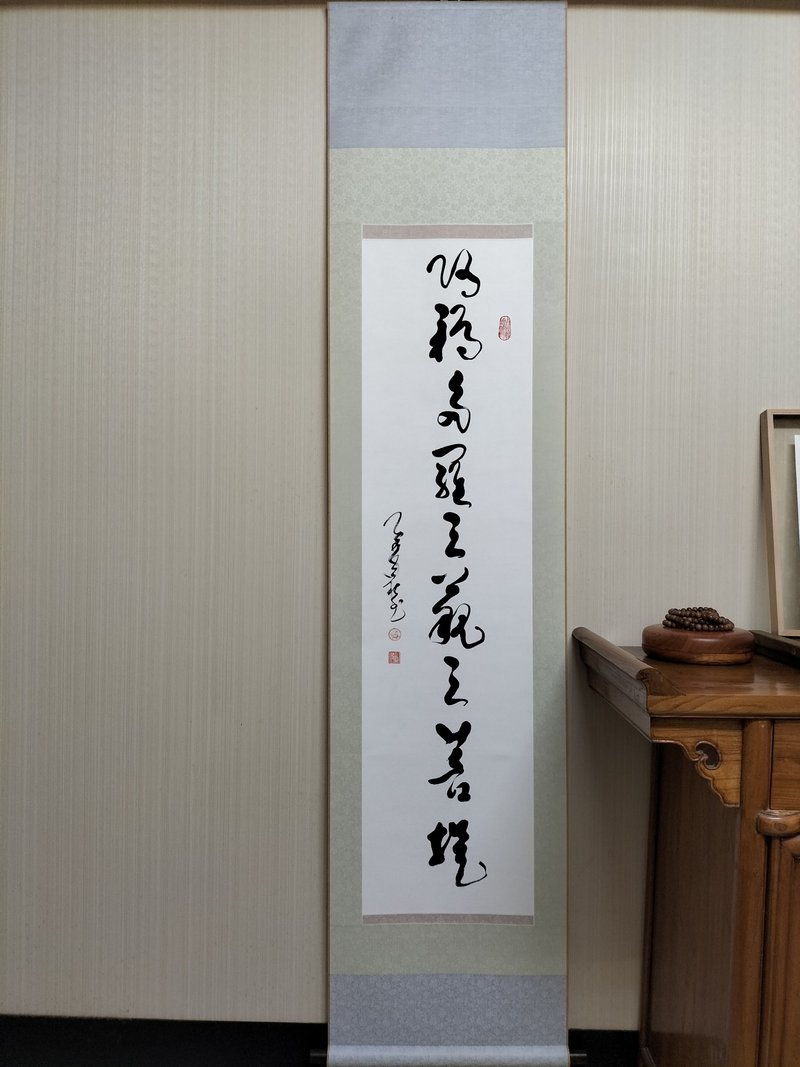 阿耨多羅三藐三菩提